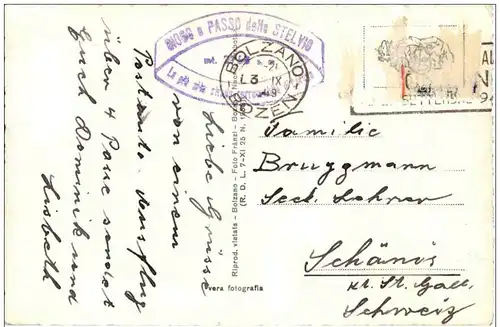 GIOGO e PASSO dello STELVIO
BOLZANO
13 IX
49
BOZEN
SETTEMBRE
Liebe Grüsse
von einem
Postauto-Ausflug
über 4 Pässe sendet
Euch Dominik und
Lisbeth
Riprod. vietata - Bolzano - Foto Fränzl - Bol
(R. D. L. 7-XI 25 N. 1
vera fotografia
Familie
Bruggmann
Sec. Lehrer
Schänis
Kt. St. Gall.
Schweiz